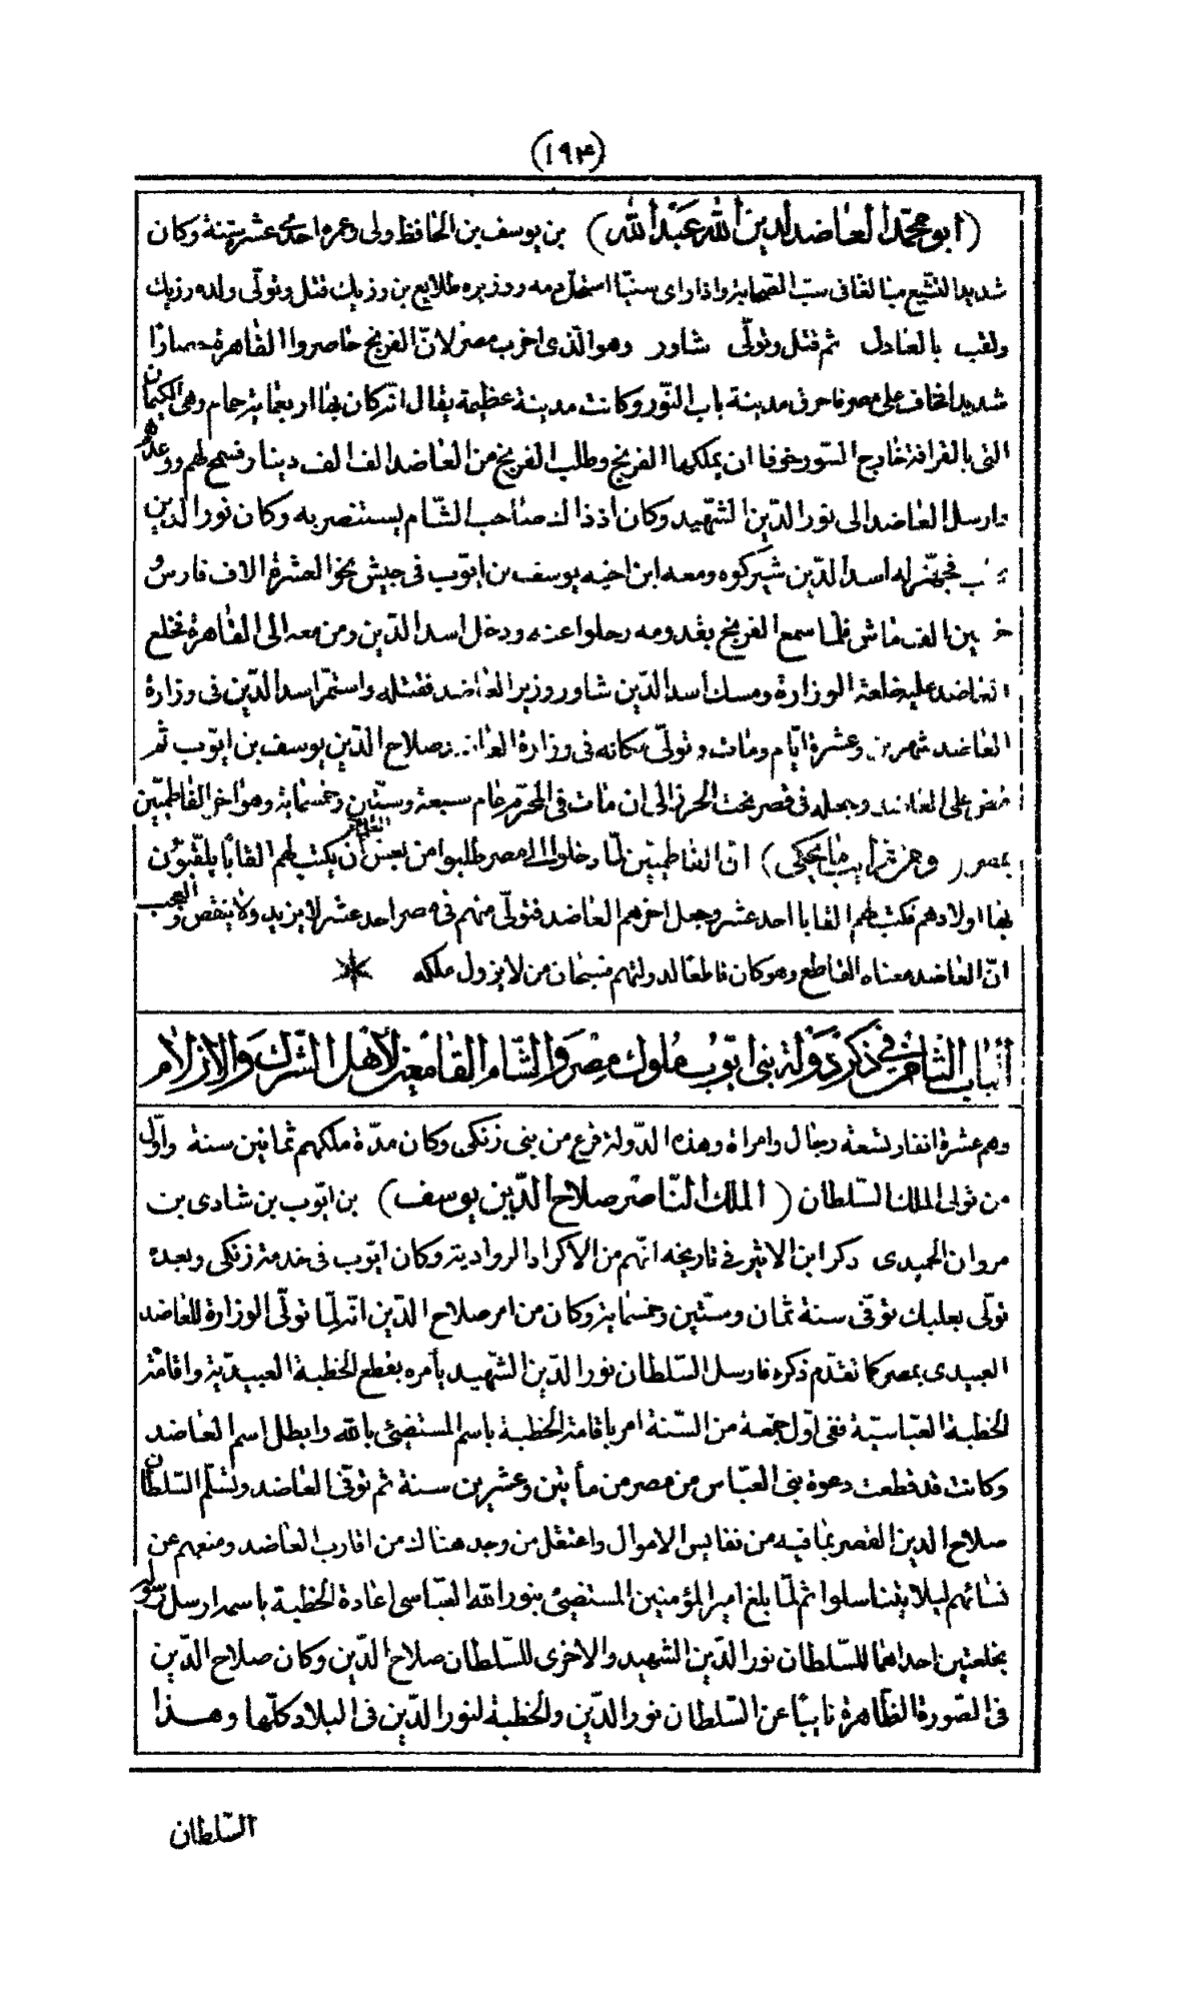 (١٩٤)
(ابو محمّد العاضد لدين الله عبد الله) بن يوسف بن الحافظ ولى وعمره احدى عشر سنة وكان
شديد التشيع مبالغا فى سبّ الصحابة واذا راى سنيّا استحل دمه ووزيره طلايع بن رزيك قتل وتولّى ولده رزيك
ولقب بالعادل ثم قتل وتولّى شاور وهو الّذى اخرب مصر لانّ الفرنج حاصروا القاهرة حصارًا
شديدا فخاف على مصر فاحرق مدينة باب النّور وكانت مدينة عظيمة يقال انّه كان بها اربعماية حمام وهى الكيمان
التى بالقرافة خارج السّور خوفا ان يملكها الفرنج وطلب الفرنج من العاضد الف الف دينار فسمح لهم ووعدهم
وارسل العاضد الى نور الدّين الشّهيد وكان اذ ذاك صاحب الشّام يستنصر به وكان نور الدّين
فجهّز له اسد الدّين شيركوه ومعه ابن اخيه يوسف بن ايّوب فى جيش نحو العشرة الاف فارس
الف ماش فلما سمع الفرنج بقدومه رحلوا عنه ودخل اسد الدّين ومن معه الى القاهرة فخلع
العاضد عليه خلعة الوزارة ومسك اسد الدّين شاور وزير العاضد فقتله واستمرّ اسد الدّين فى وزارة
العاضد شهرين وعشرة ايّام ومات وتولّى مكانه فى وزارة العاضد صلاح الدّين يوسف بن ايّوب ثم
قبض على العاضد وجعله فى قصر تحت الحرز الى ان مات فى المحرّم عام سبعة وستّين وخمسماية وهو آخر الفاطميّين
بمصر (ومن غرايب ما يحكى) ان الفاطميّين لمّا دخلوا الى مصر طلبوا من بعض العلماء ان يكتب لهم القابًا يلقّبون
بها اولادهم فكتب لهم القابا احد عشر وجعل اخرهم العاضد فتولّى منهم فى مصر احد عشر لا يزيد ولا ينقص والعجب
انّ العاضد معناه القاطع وهو كان قاطعًا لدولتهم فسبحان من لا يزول ملكه
الباب الثامن فى ذكر دولة بنى ايّوب ملوك مصر والشّام القامعين لأهل الشّرك والازلام
وهم عشرة انفار تسعة رجال وامراة وهذه الدّولة فرع من بنى زنكى وكان مدّة ملكهم ثمانين سنة واوّل
من تولى الملك السّلطان (الملك النّاصر صلاح الدّين يوسف) بن ايّوب بن شادى بن
مروان الحميدى ذكر ابن الاثير فى تاريخه انّهم من الاكراد الروادية وكان ايّوب فى خدمة زنكى وبعده
تولّى بعلبك توفّى سنة ثمان وستّين وخمسماية وكان من امر صلاح الدّين انّه لمّا تولّى الوزارة للعاضد
العبيدى بمصر كما تقدّم ذكره فارسل السّلطان نور الدّين الشّهيد يأمره بقطع الخطبة العبيديّة واقامة
الخطبة العبّاسيّة ففى اوّل جمعة من السّنة امر باقامة الخطبة باسم المستضئ بالله وابطل اسم العاضد
وكانت قد قطعت دعوة بنى العبّاس من مصر من مأتين وعشرين سنة ثم توفّى العاضد وتسلّم السّلطان
صلاح الدين القصر بما فيه من نفايس الاموال واعتقل من وجد هناك من اقارب العاضد ومنعهم عن
نسائهم ليلا يتناسلوا ثم لمّا بلغ امير المؤمنين المستضئ بنور الله العبّاسى اعادة الخطبة باسمه ارسل
بخلعتين احداهما للسّلطان نور الدّين الشهيد والاخرى للسّلطان صلاح الدّين وكان صلاح الدّين
فى الصّورة الظّاهرة نايبًا عن السّلطان نور الدّين والخطبة لنور الدّين فى البلاد كلّها وهذا
السّلطان